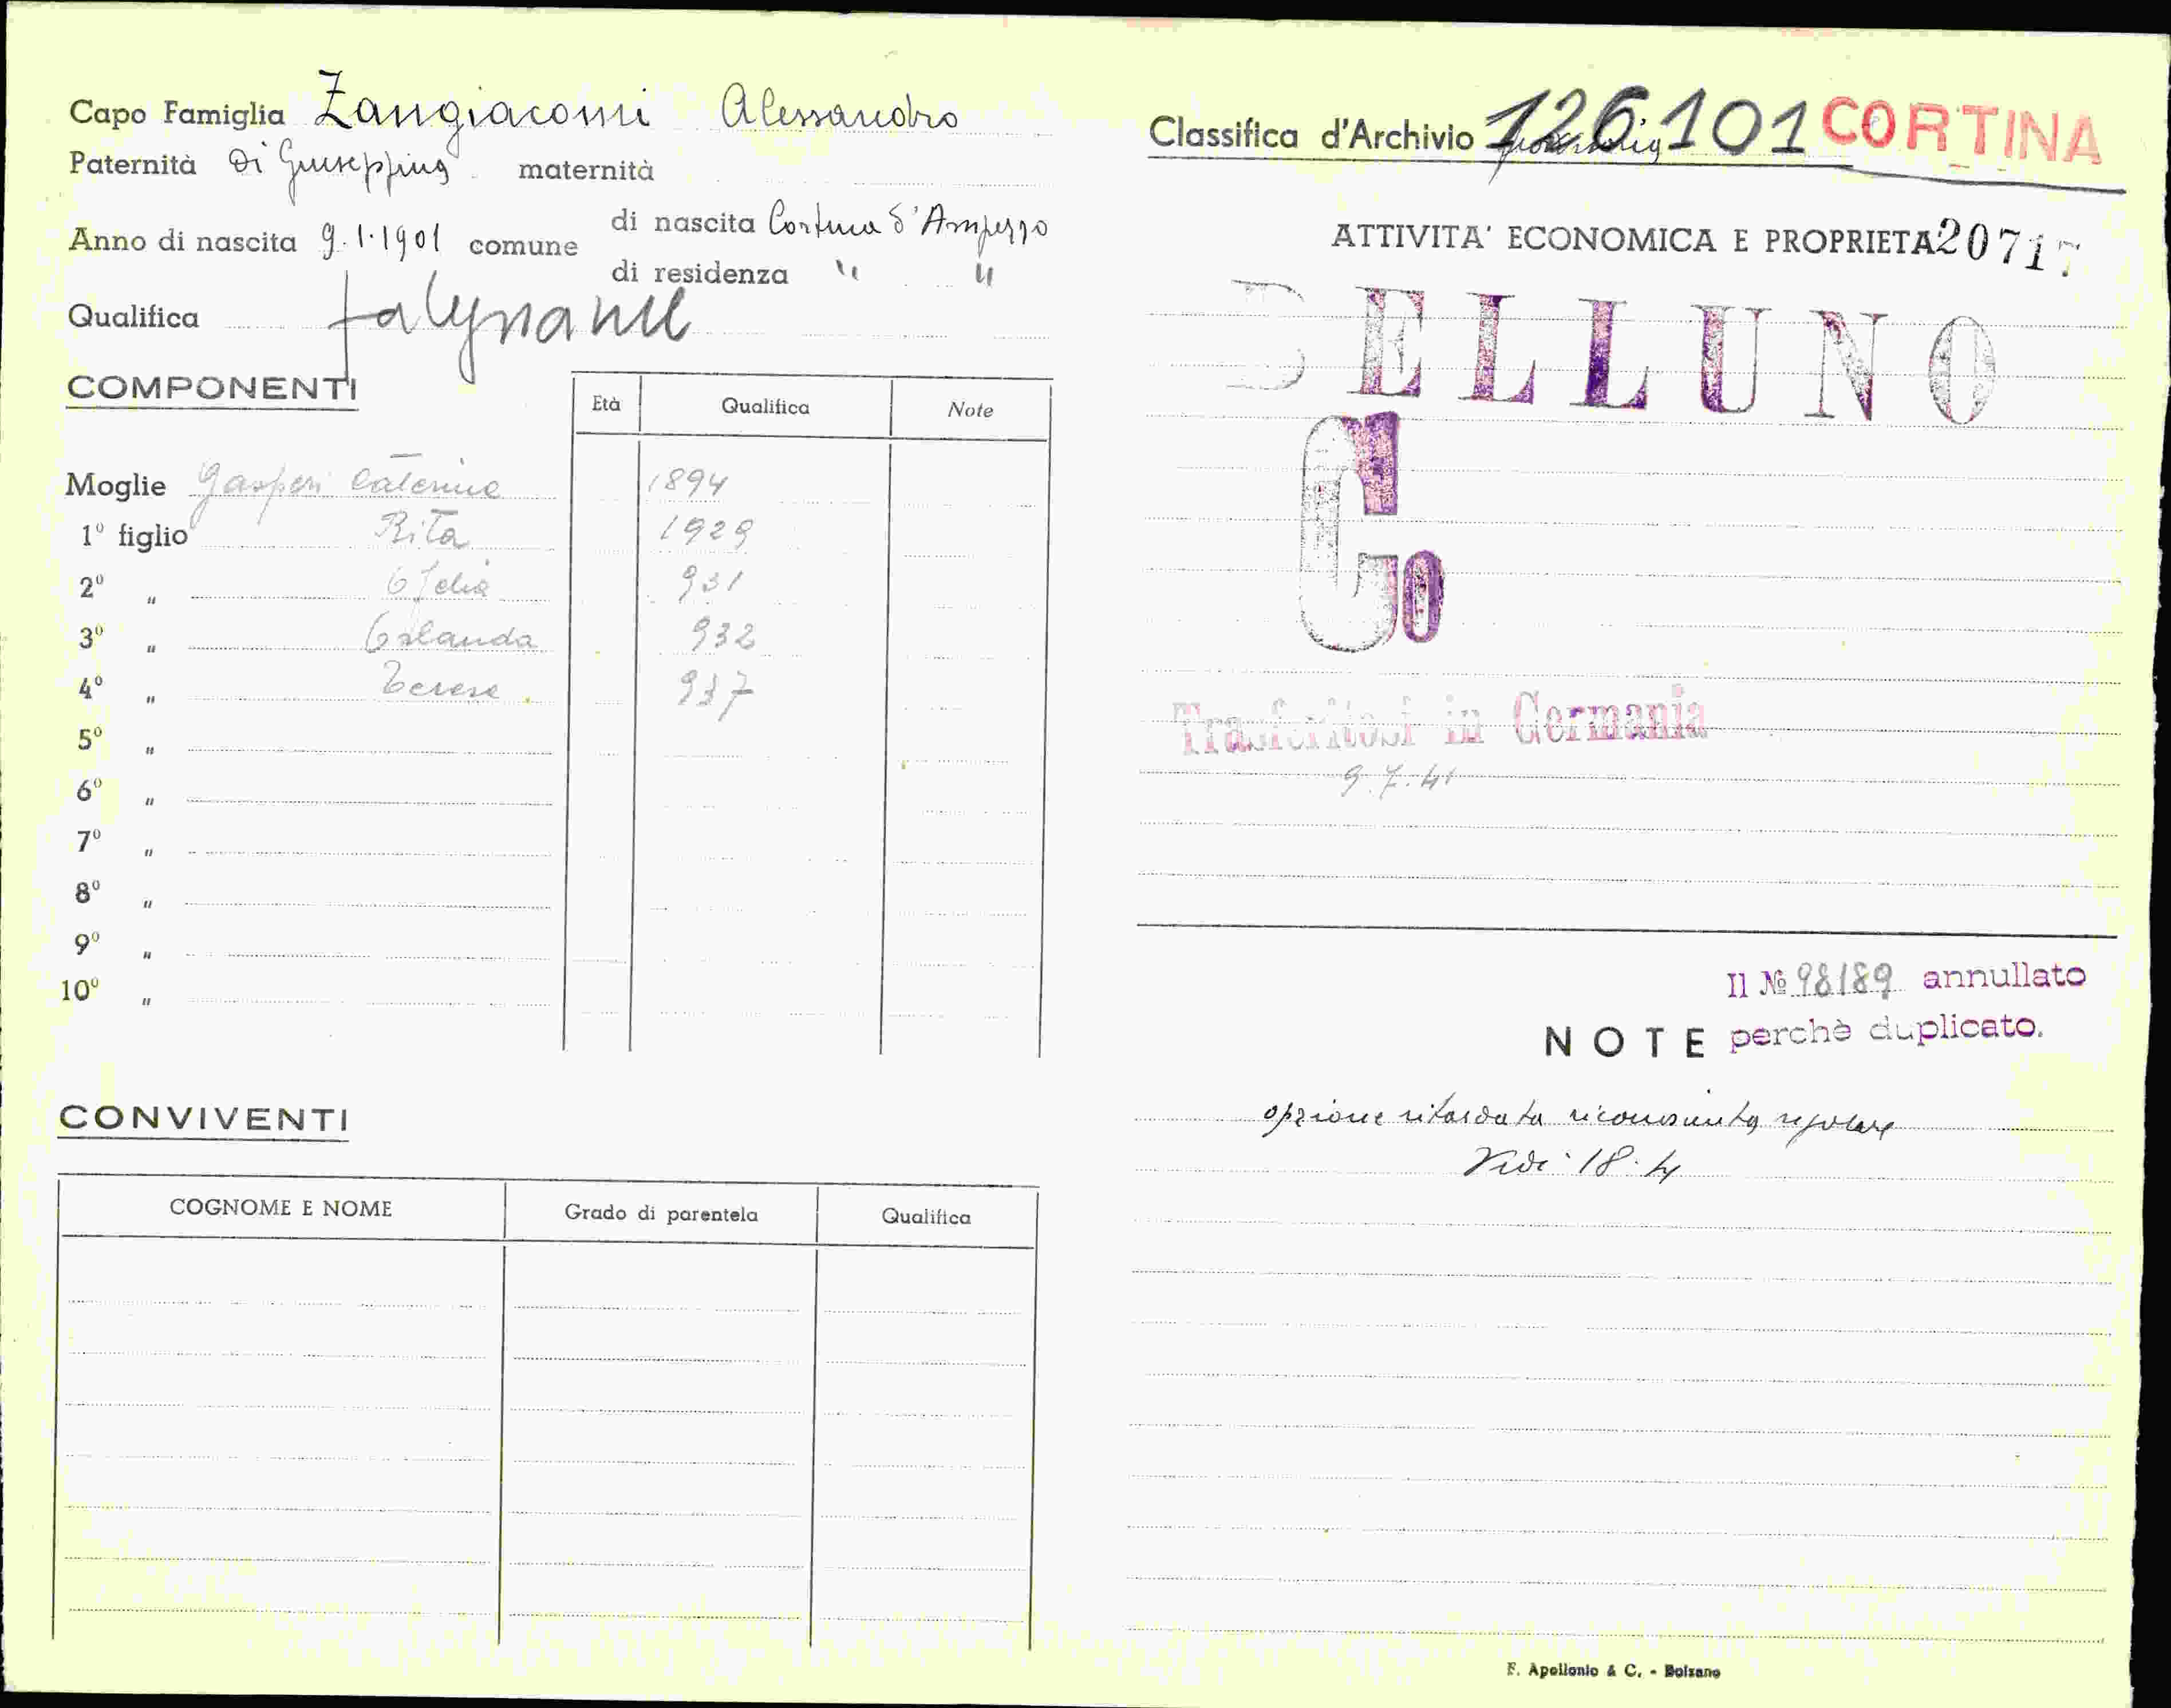 Capo Famiglia Zangiacomi Alessandro
Paternità di Giuseppina maternità
Anno di nascita 9.1.1901 comune
di nascita Cortina d'Ampezzo
di residenza " "
Qualifica falegname
COMPONENTI
Età Qualifica Note
Moglie Gasperi Caterina 1894
1º figlio Rita 1929
2º " Ofelia 931
3º " Orlanda 932
4º " Terese 937
5º "
6º "
7º "
8º "
9º "
10º "
CONVIVENTI
COGNOME E NOME Grado di parentela Qualifica
Classifica d'Archivio 126101 CORTINA
ATTIVITA' ECONOMICA E PROPRIETA 20717
BELLUNO
Go
Trasferitosi in Germania
9.7.41
Il № 98189 annullato
NOTE perchè duplicato.
opzione ritardata riconosciuta regolare
Vedi 18.4
F. Apollonio & C. - Bolzano